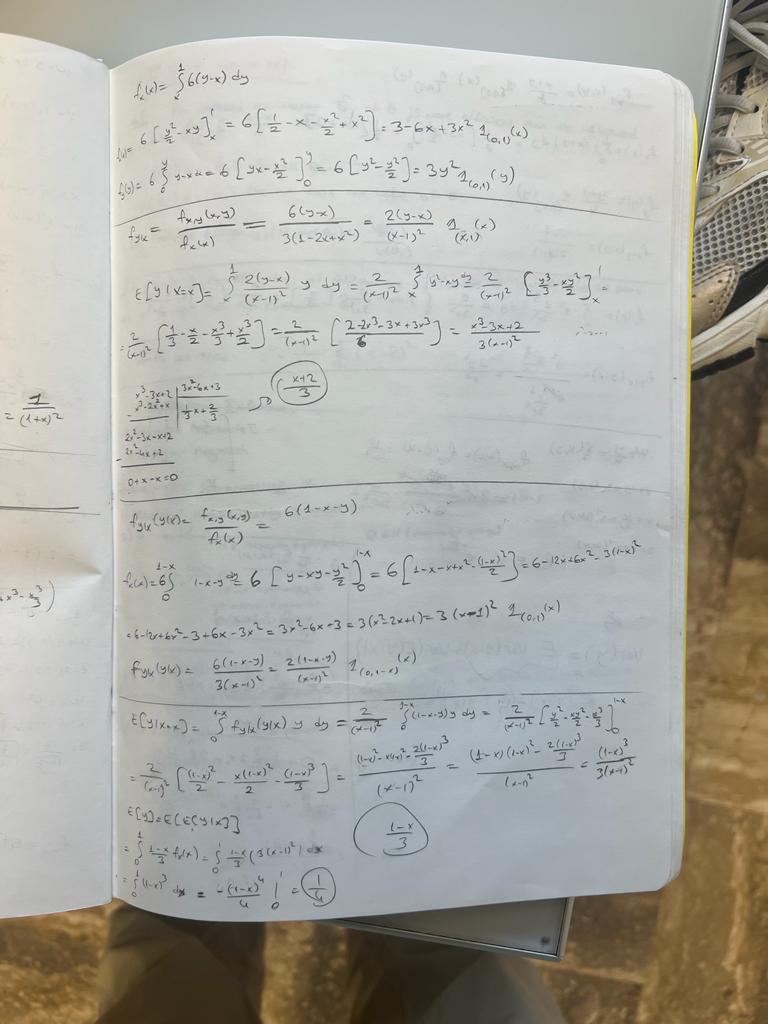 = 1/(1+x)²
f_X(x) = ∫_x^1 6(y-x) dy
6[y²/2 - xy]_x^1 = 6[1/2 - x - x²/2 + x²] = 3-6x+3x² 1_(0,1)(x)
f_y(y) = 6∫_0^y y-x dx = 6[yx - x²/2]_0^y = 6[y² - y²/2] = 3y² 1_(0,1)(y)
f_y|x = f_x,y(x,y)/f_x(x) = 6(y-x)/3(1-2x+x²) = 2(y-x)/(x-1)² 1_(x,1)(x)
E[y|X=x] = ∫_x^1 2(y-x)/(x-1)² y dy = 2/(x-1)² ∫_x^1 y²-xy dy = 2/(x-1)² [y³/3 - xy²/2]_x^1 =
= 2/(x-1)² [1/3 - x/2 - x³/3 + x³/2] = 2/(x-1)² [2-2x³-3x+3x³/6] = x³-3x+2/3(x-1)²
x³-3x+2 | 3x²-6x+3
- x³-2x²+x | 1/3x + 2/3 → x+2/3
2x²-3x-x+2
- 2x²-4x+2
0+x-x=0
f_y|x(y|x) = f_x,y(x,y)/f_x(x) = 6(1-x-y)
f_x(x) = 6∫_0^1-x 1-x-y dy = 6[y-xy-y²/2]_0^1-x = 6[1-x-x+x²-(1-x)²/2] = 6-12x+6x²-3(1-x)²
= 6-12x+6x²-3+6x-3x² = 3x²-6x+3 = 3(x²-2x+1) = 3(x-1)² 1_(0,1)(x)
f_y|x(y|x) = 6(1-x-y)/3(x-1)² = 2(1-x-y)/(x-1)² 1_(0,1-x)(x)
E[y|X=x] = ∫_0^1-x f_y|x(y|x) y dy = 2/(x-1)² ∫_0^1-x (1-x-y)y dy = 2/(x-1)² [y²/2 - xy²/2 - y³/3]_0^1-x
= 2/(x-1)² [(1-x)²/2 - x(1-x)²/2 - (1-x)³/3] = (1-x)²-x(1-x)²-2(1-x)³/3/(x-1)² = (1-x)(1-x)²-2(1-x)³/3/(x-1)² = (1-x)³/3(x-1)²
E[y] = E[E[y|x]]
1-x/3
= ∫_0^1 1-x/3 f_x(x) = ∫_0^1 1-x/3 (3(x-1)²) dx
= ∫_0^1 (1-x)³ dx = -(1-x)⁴/4 |_0^1 = 1/4